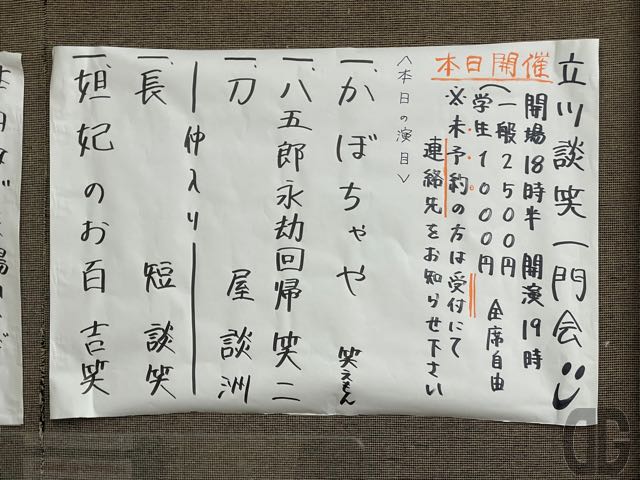 立川談笑一門会
本日開催
開場18時半 開演19時
(一般2500円
学生1000円 全席自由
※未予約の方は受付にて
連絡先をお知らせ下さい
〈本日の演目〉
一、かぼちゃや 笑えもん
一、八五郎永劫回帰 笑二
一、刀屋 談洲
仲入り
一、長短 談笑
一、妲妃のお百 吉笑